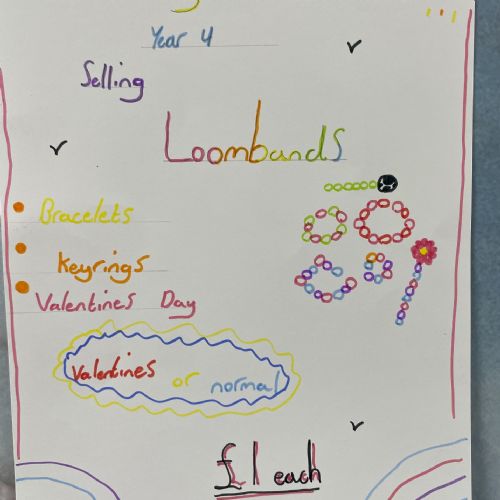 Year 4
Selling
Loombands
Bracelets
Keyrings
Valentines Day
Valentines or normal
£1 each